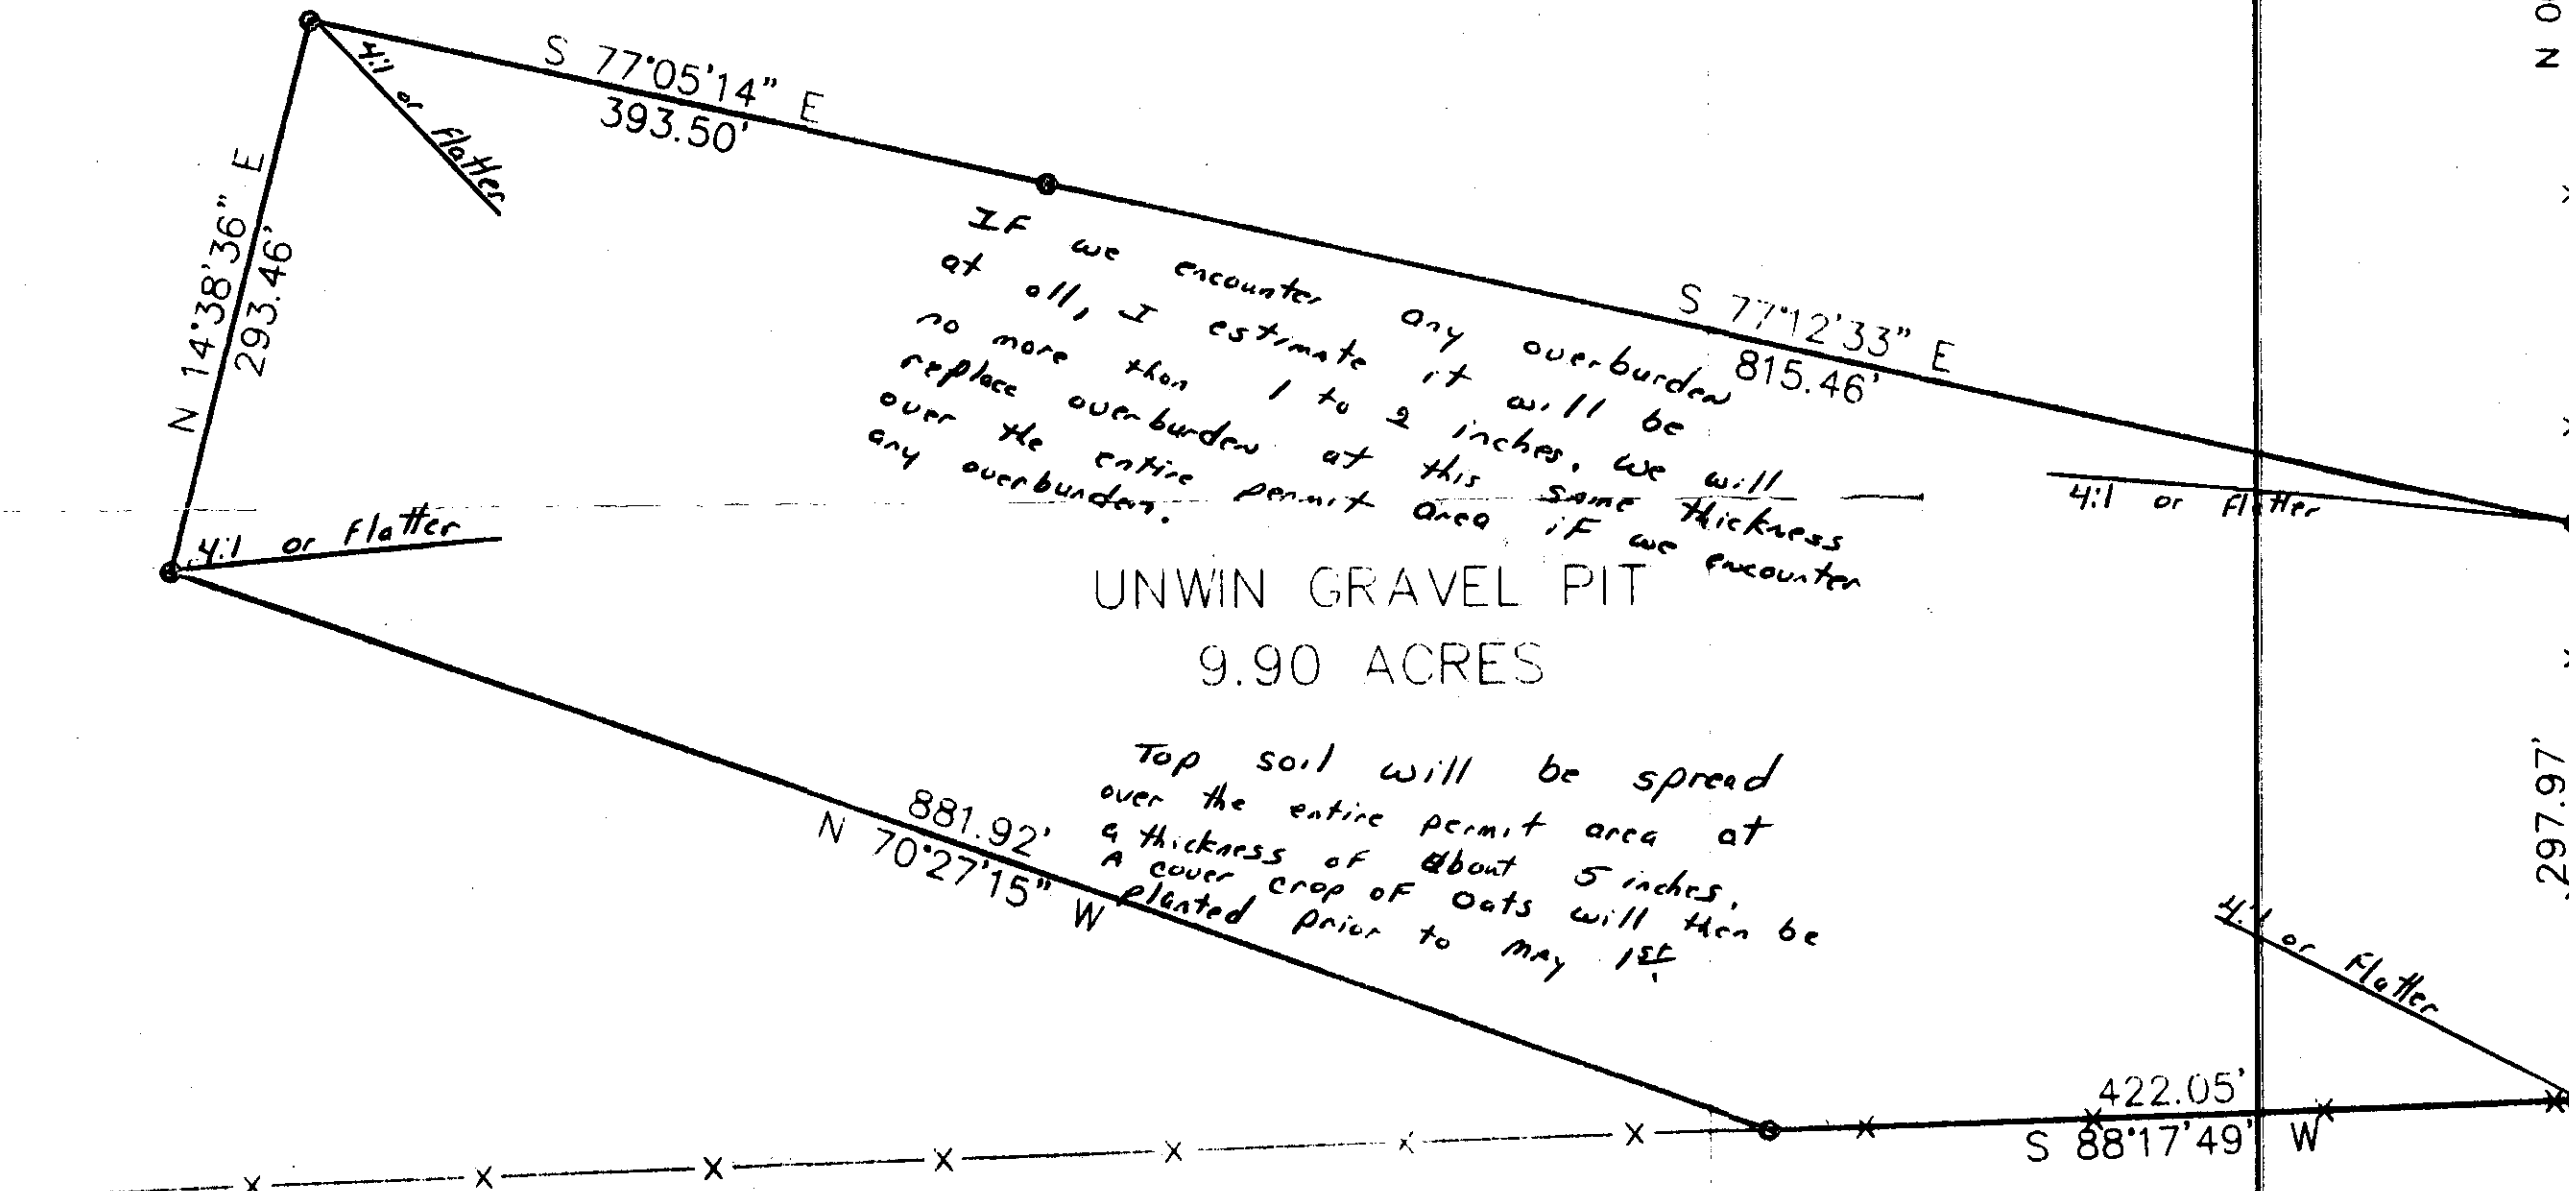 S 77°05'14" E
393.50'
4:1 or flatter
N 14°38'36" E
293.46'
4:1 or flatter
S 77°12'33" E
815.46'
IF we encounter any overburden
at all, I estimate it will be
no more than 1 to 2 inches. we will
replace overburden at this same thickness
over the entire permit area if we encounter
any overburden.
4:1 or flatter
UNWIN GRAVEL PIT
9.90 ACRES
Top soil will be spread
over the entire permit area at
a thickness of about 5 inches.
A cover crop of oats will then be
planted prior to may 1st.
881.92'
N 70°27'15" W
4:1 or flatter
422.05'
S 88°17'49" W
297.97'
N 0